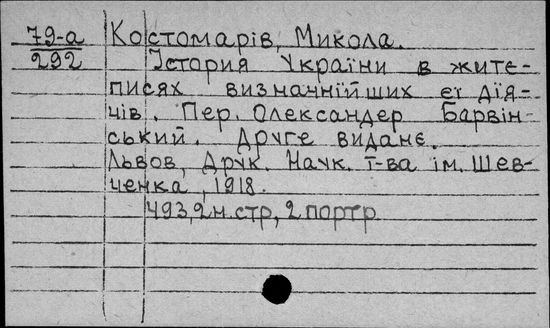 79-а
292
Костомарів, Микола.
Істория України в жите-
писях визначнійших еї дія-
чів. Пер. Олександер Барвін-
ський. Друге виданє.
Львов, Друк. Наук. т-ва ім. Шев-
ченка, 1918.
493,2 н. стр, 2 портр